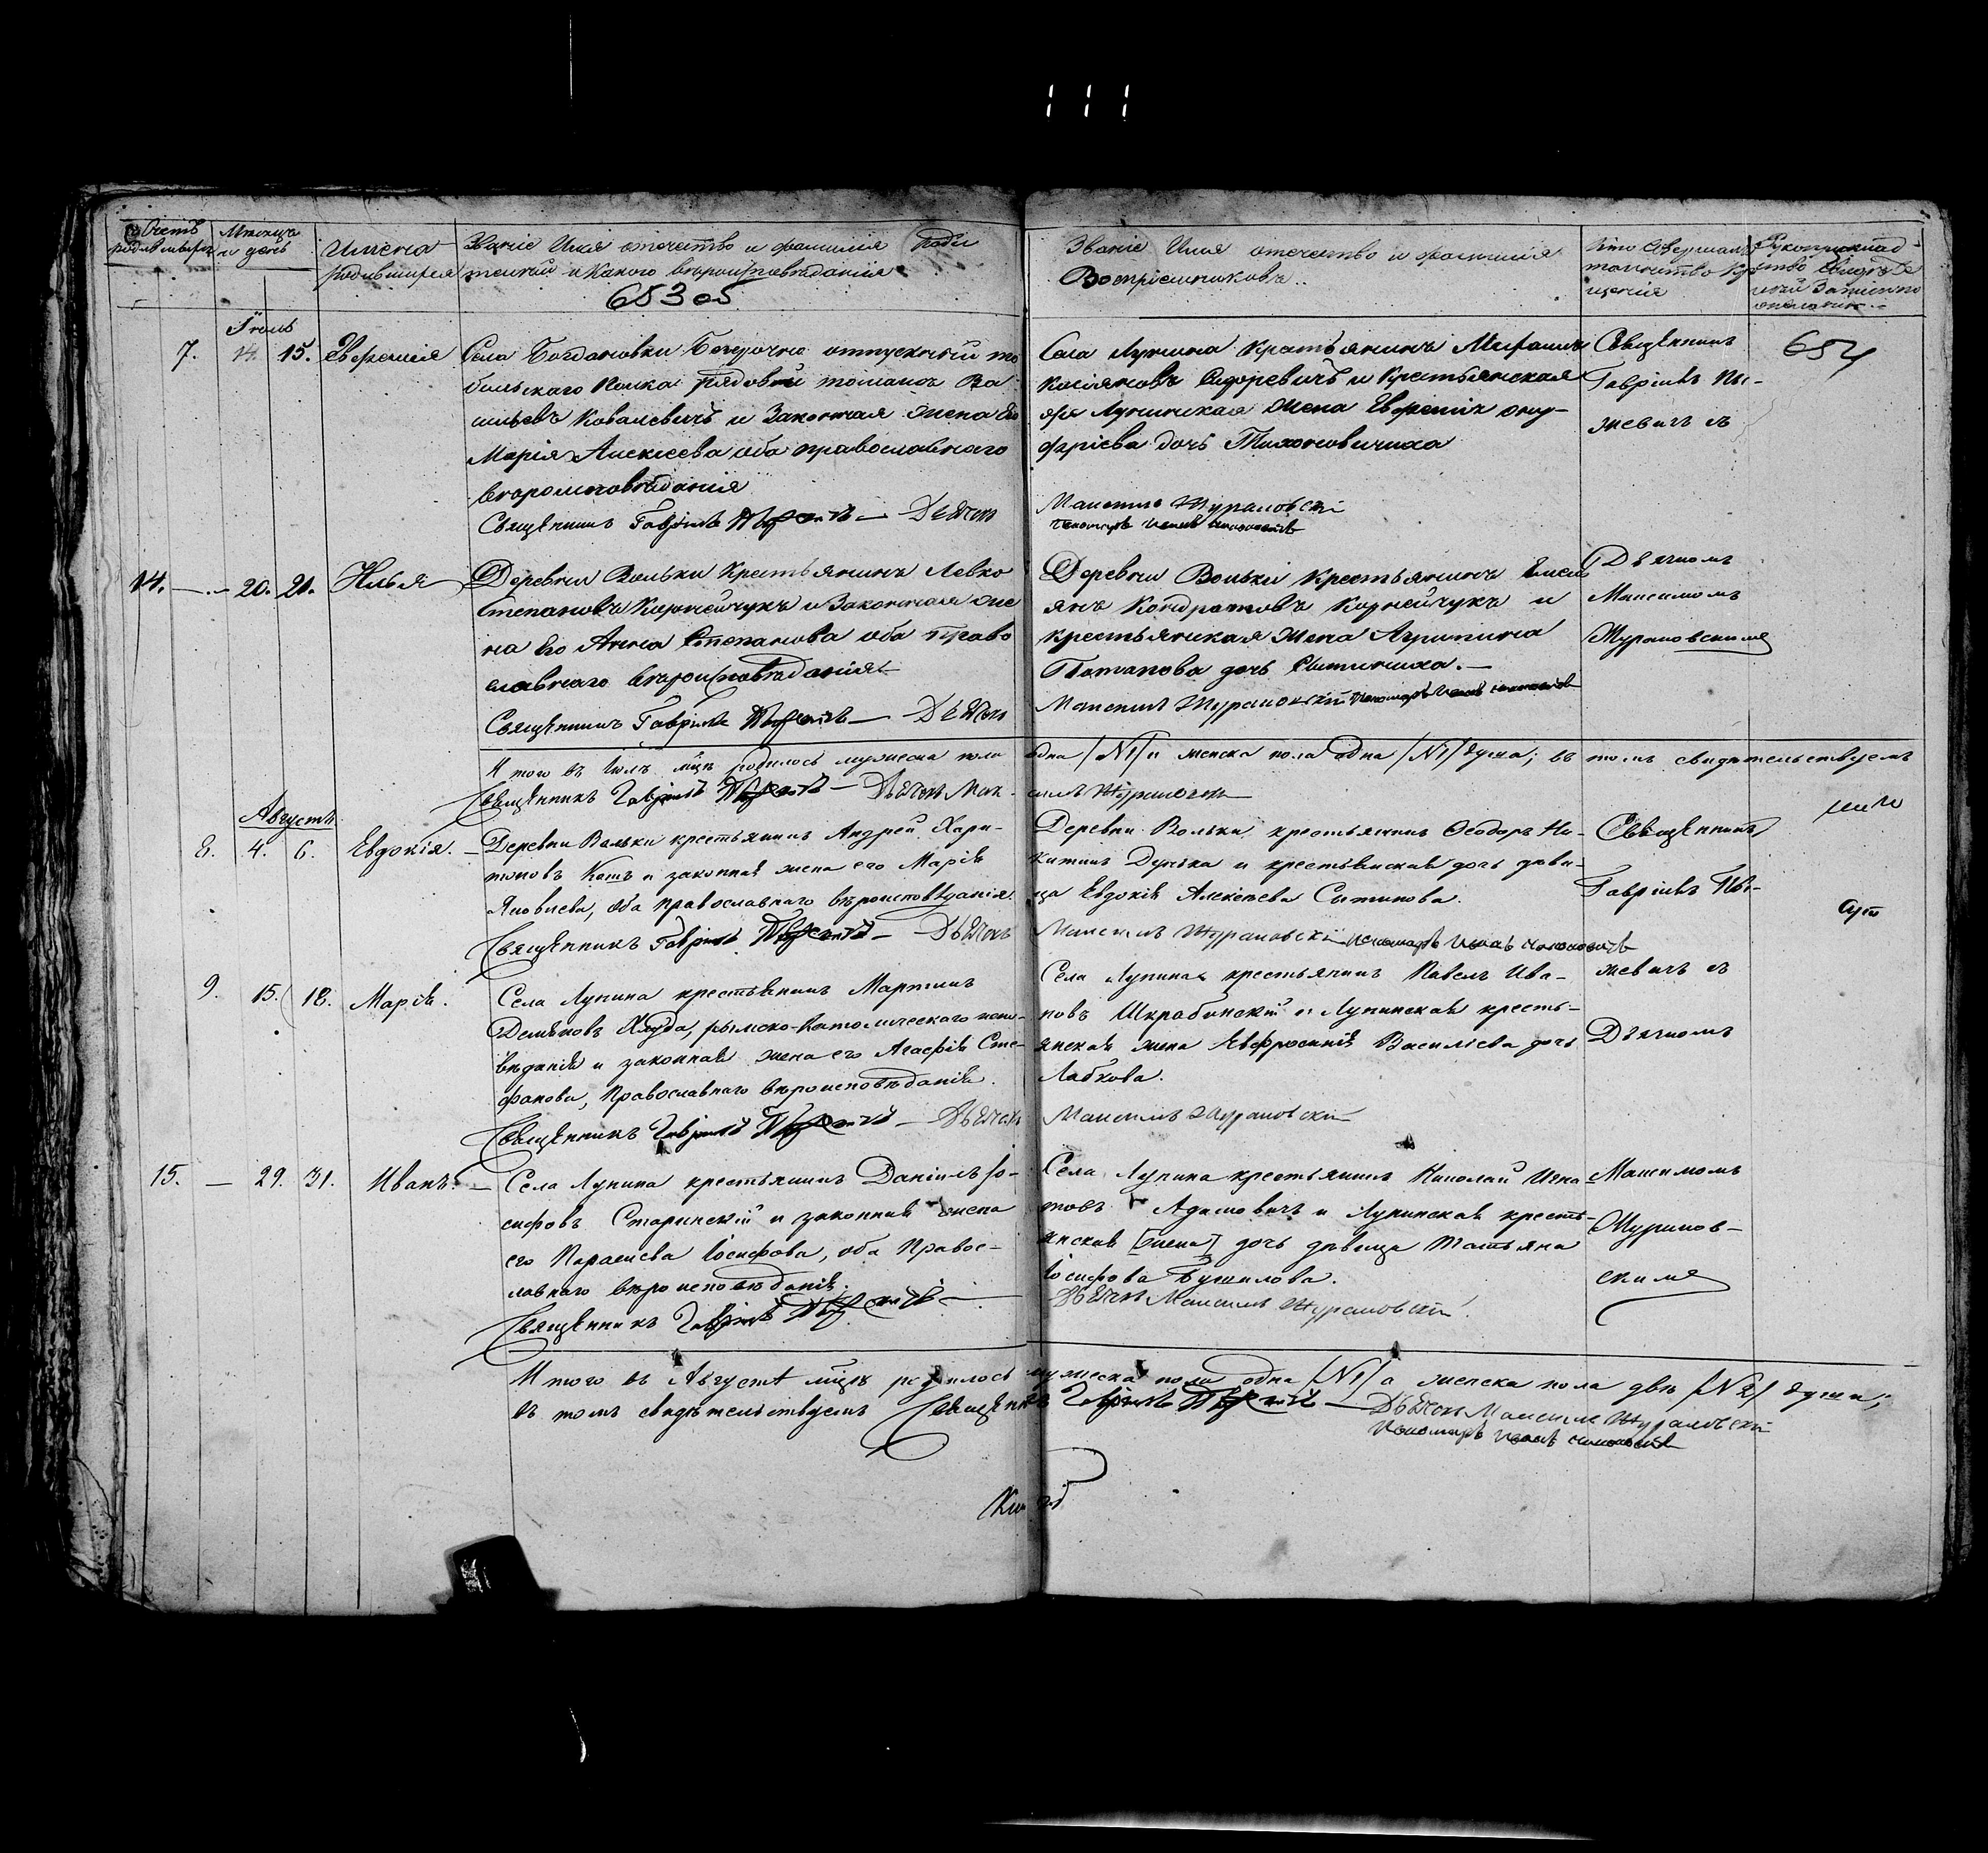 Счетъ родившихся
Мѣсяцъ и день
Имена родившихся
Званіе Имя отечество и фамилія роди
телей и какого вѣроисповѣданія
653 об
Званіе Имя отечество и фамилія
Воспріемниковъ..
Кто совершалъ таинство крещенія
Рукоприкладство свидѣтелей записи по желанію.
Іюль
7. 14. 15. Евфимія
Села Богдановки безсрочно отпускный то
больскаго полка рядовой Томашъ Ва
сильевъ Ковалевичъ и Законная жена Его
Марія Алексеева оба православнаго
вѣроисповѣданія
Священникъ Гавріилъ — Дьячокъ
Села Лунина Крестьянинъ
Сидоревичъ и Крестьянская
Лунинская жена Евфимія Ону-
фріева дочь Тихоновичиха
Максимъ Журановскій
пономарь
Священникъ
Гавріилъ
жевичъ съ
654
14. — 20. 21. Илья
Деревни Вольки Крестьянинъ Левко
Степановъ Корнейчукъ и Законная же
на Его Анна Степанова оба Право
славнаго вѣроисповѣданія
Священникъ Гавріилъ — Дьячокъ
Деревни Вольки Крестьянинъ Емель
янъ Кондратовъ Корнейчукъ и
крестьянская жена Агрипина
Потапова дочь Сытиниха.—
Максимъ Журановскій пономарь
Дьячкомъ
Максимомъ
Журановскимъ
Итого въ Іюлѣ мцѣ родилось мужеска пола одна /№1/ и женска пола одна /№1/ душа; въ томъ свидѣтельствуемъ
Священникъ Гавріилъ — Дьячокъ Максимъ Журановскій
Августъ
8. 4. 6. Евдокія. —
Деревни Вольки крестьянинъ Андрей Хари-
тоновъ Кошъ и законная жена его Марія
Яковлева, оба православнаго вѣроисповѣданія.
Священникъ Гавріилъ — Дьячокъ
Деревни Вольки крестьянинъ Ѳеодоръ Ни-
китинъ Дунька и крестьянская дочь дѣви-
ца Евдокія Алексѣева Сытинова.
Максимъ Журановскій пономарь
Священникъ
Гавріилъ
жевичъ съ
9. 15. 18. Марія.
Села Лунина крестьянинъ Мартинъ
Демьяновъ Хлуда, рымско-Католическаго испо-
вѣданія и законная жена его Агафія Сте-
фанова, Православнаго вѣроисповѣданія.
Священникъ Гавріилъ — Дьячокъ
Села Лунина крестьянинъ Павелъ Ива-
новъ Шкрабинскій и Лунинская кресть-
янская жена Евфросинія Василіева дочь
Лабкова.
Максимъ Журановскій
Дьячкомъ
15. — 29. 31. Иванъ. —
Села Лунина крестьянинъ Даніилъ Іо-
сифовъ Старинскій и законная жена
его Параскева Іосифова, оба Правос-
лавнаго вѣроисповѣданія.
Священникъ Гавріилъ —
Села Лунина крестьянинъ Николай Игна-
товъ Адамовичъ и Лунинская кресть-
янская [жена] дочь дѣвица Татьяна
Іосифова Бушилова.
Дьячокъ Максимъ Журановскій
Максимомъ
Журанов-
скимъ
Итого въ Августѣ мцѣ родилось мужеска пола одна /№1/ а женска пола двѣ /№2/ душа;
въ томъ свидѣтельствуемъ Священникъ Гавріилъ — Дьячокъ Максимъ Журановскій
пономарь